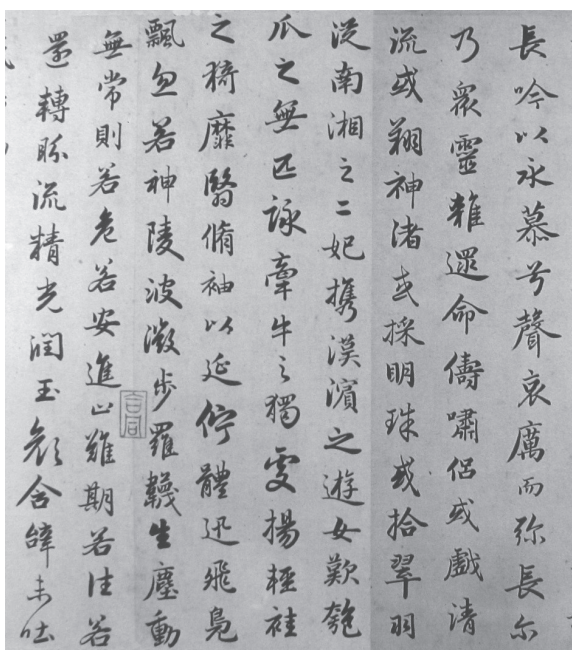 長吟以永慕兮聲哀厲而弥長尓
乃衆靈雜遝命儔嘯侶或戲清
流或翔神渚或採明珠或拾翠羽
從南湘之二妃攜漢濱之遊女歎匏
瓜之無匹詠牽牛之獨處揚輕袿
之猗靡翳脩袖以延佇體迅飛鳧
飄忽若神陵波微步羅韈生塵動
無常則若危若安進止難期若往若
還轉眄流精光潤玉顔含辭未吐